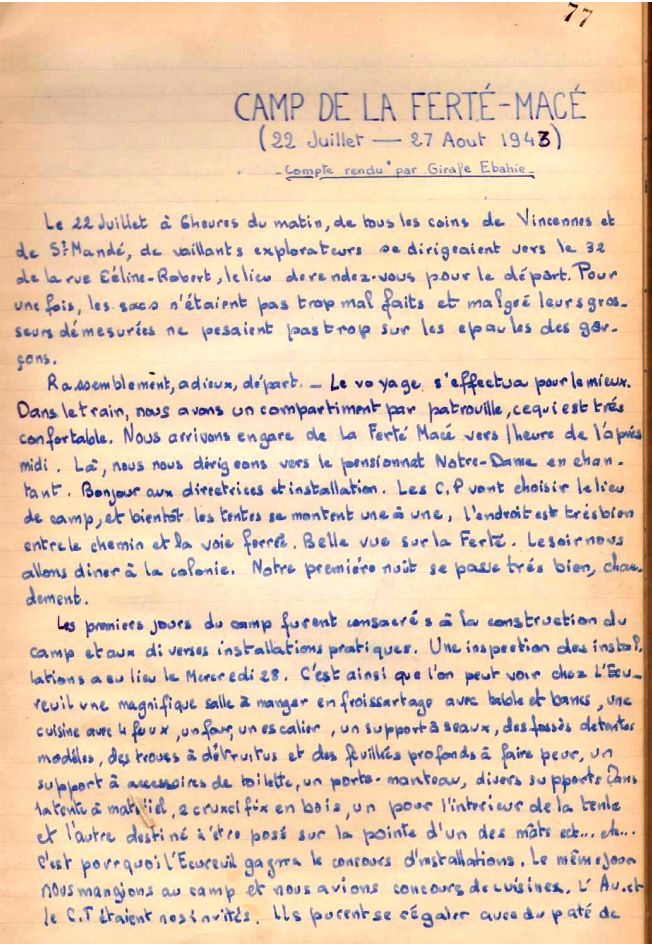 77
CAMP DE LA FERTÉ-MACÉ
(22 Juillet — 27 Aout 1943)
- Compte rendu par Girafe Ebahie -
Le 22 Juillet à 6 heures du matin, de tous les coins de Vincennes et
de St Mandé, de vaillants explorateurs se dirigeaient vers le 32
de la rue Céline-Robert, le lieu de rendez-vous pour le départ. Pour
une fois, les sacs n'étaient pas trop mal faits et malgré leurs gros-
seurs démesurées ne pesaient pas trop sur les epaules des gar-
çons.
Rassemblement, adieux, départ. — Le voyage s'effectua pour le mieux.
Dans le train, nous avons un compartiment par patrouille, ce qui est trés
confortable. Nous arrivons en gare de La Ferté Macé vers 1 heure de l'après
midi. Là, nous nous dirigeons vers le pensionnat Notre-Dame en chan-
tant. Bonjour aux directrices et installation. Les C.P vont choisir le lieu
de camp, et bientôt les tentes se montent une à une, l'endroit est trés bien
entre le chemin et la voie ferrée. Belle vue sur la Ferté. Le soir nous
allons diner à la colonie. Notre première nuit se passe trés bien, chau-
dement.
Les premiers jours du camp furent consacrés à la construction du
camp et aux diverses installations pratiques. Une inspection des instal-
lations a eu lieu le Mercredi 28. C'est ainsi que l'on peut voir chez l'Ecu-
reuil une magnifique salle à manger en froissartage avec table et bancs, une
cuisine avec 4 feux, un four, un escalier, un support à seaux, des fossés de tentes
modèles, des troues à détruitus et des feuillées profonds à faire peur, un
support à accessoires de toilette, un porte-manteau, divers supports dans
la tente à matériel, 2 crucifix en bois, un pour l'interieur de la tente
et l'autre destiné à être posé sur la pointe d'un des mâts ect... etc...
C'est pourquoi l'Ecureuil gagna le concours d'installations. Le même jour
nous mangions au camp et nous avions concours de cuisines. L'Au. et
le C.T étaient nos invités. Ils purent se régaler avec du paté de